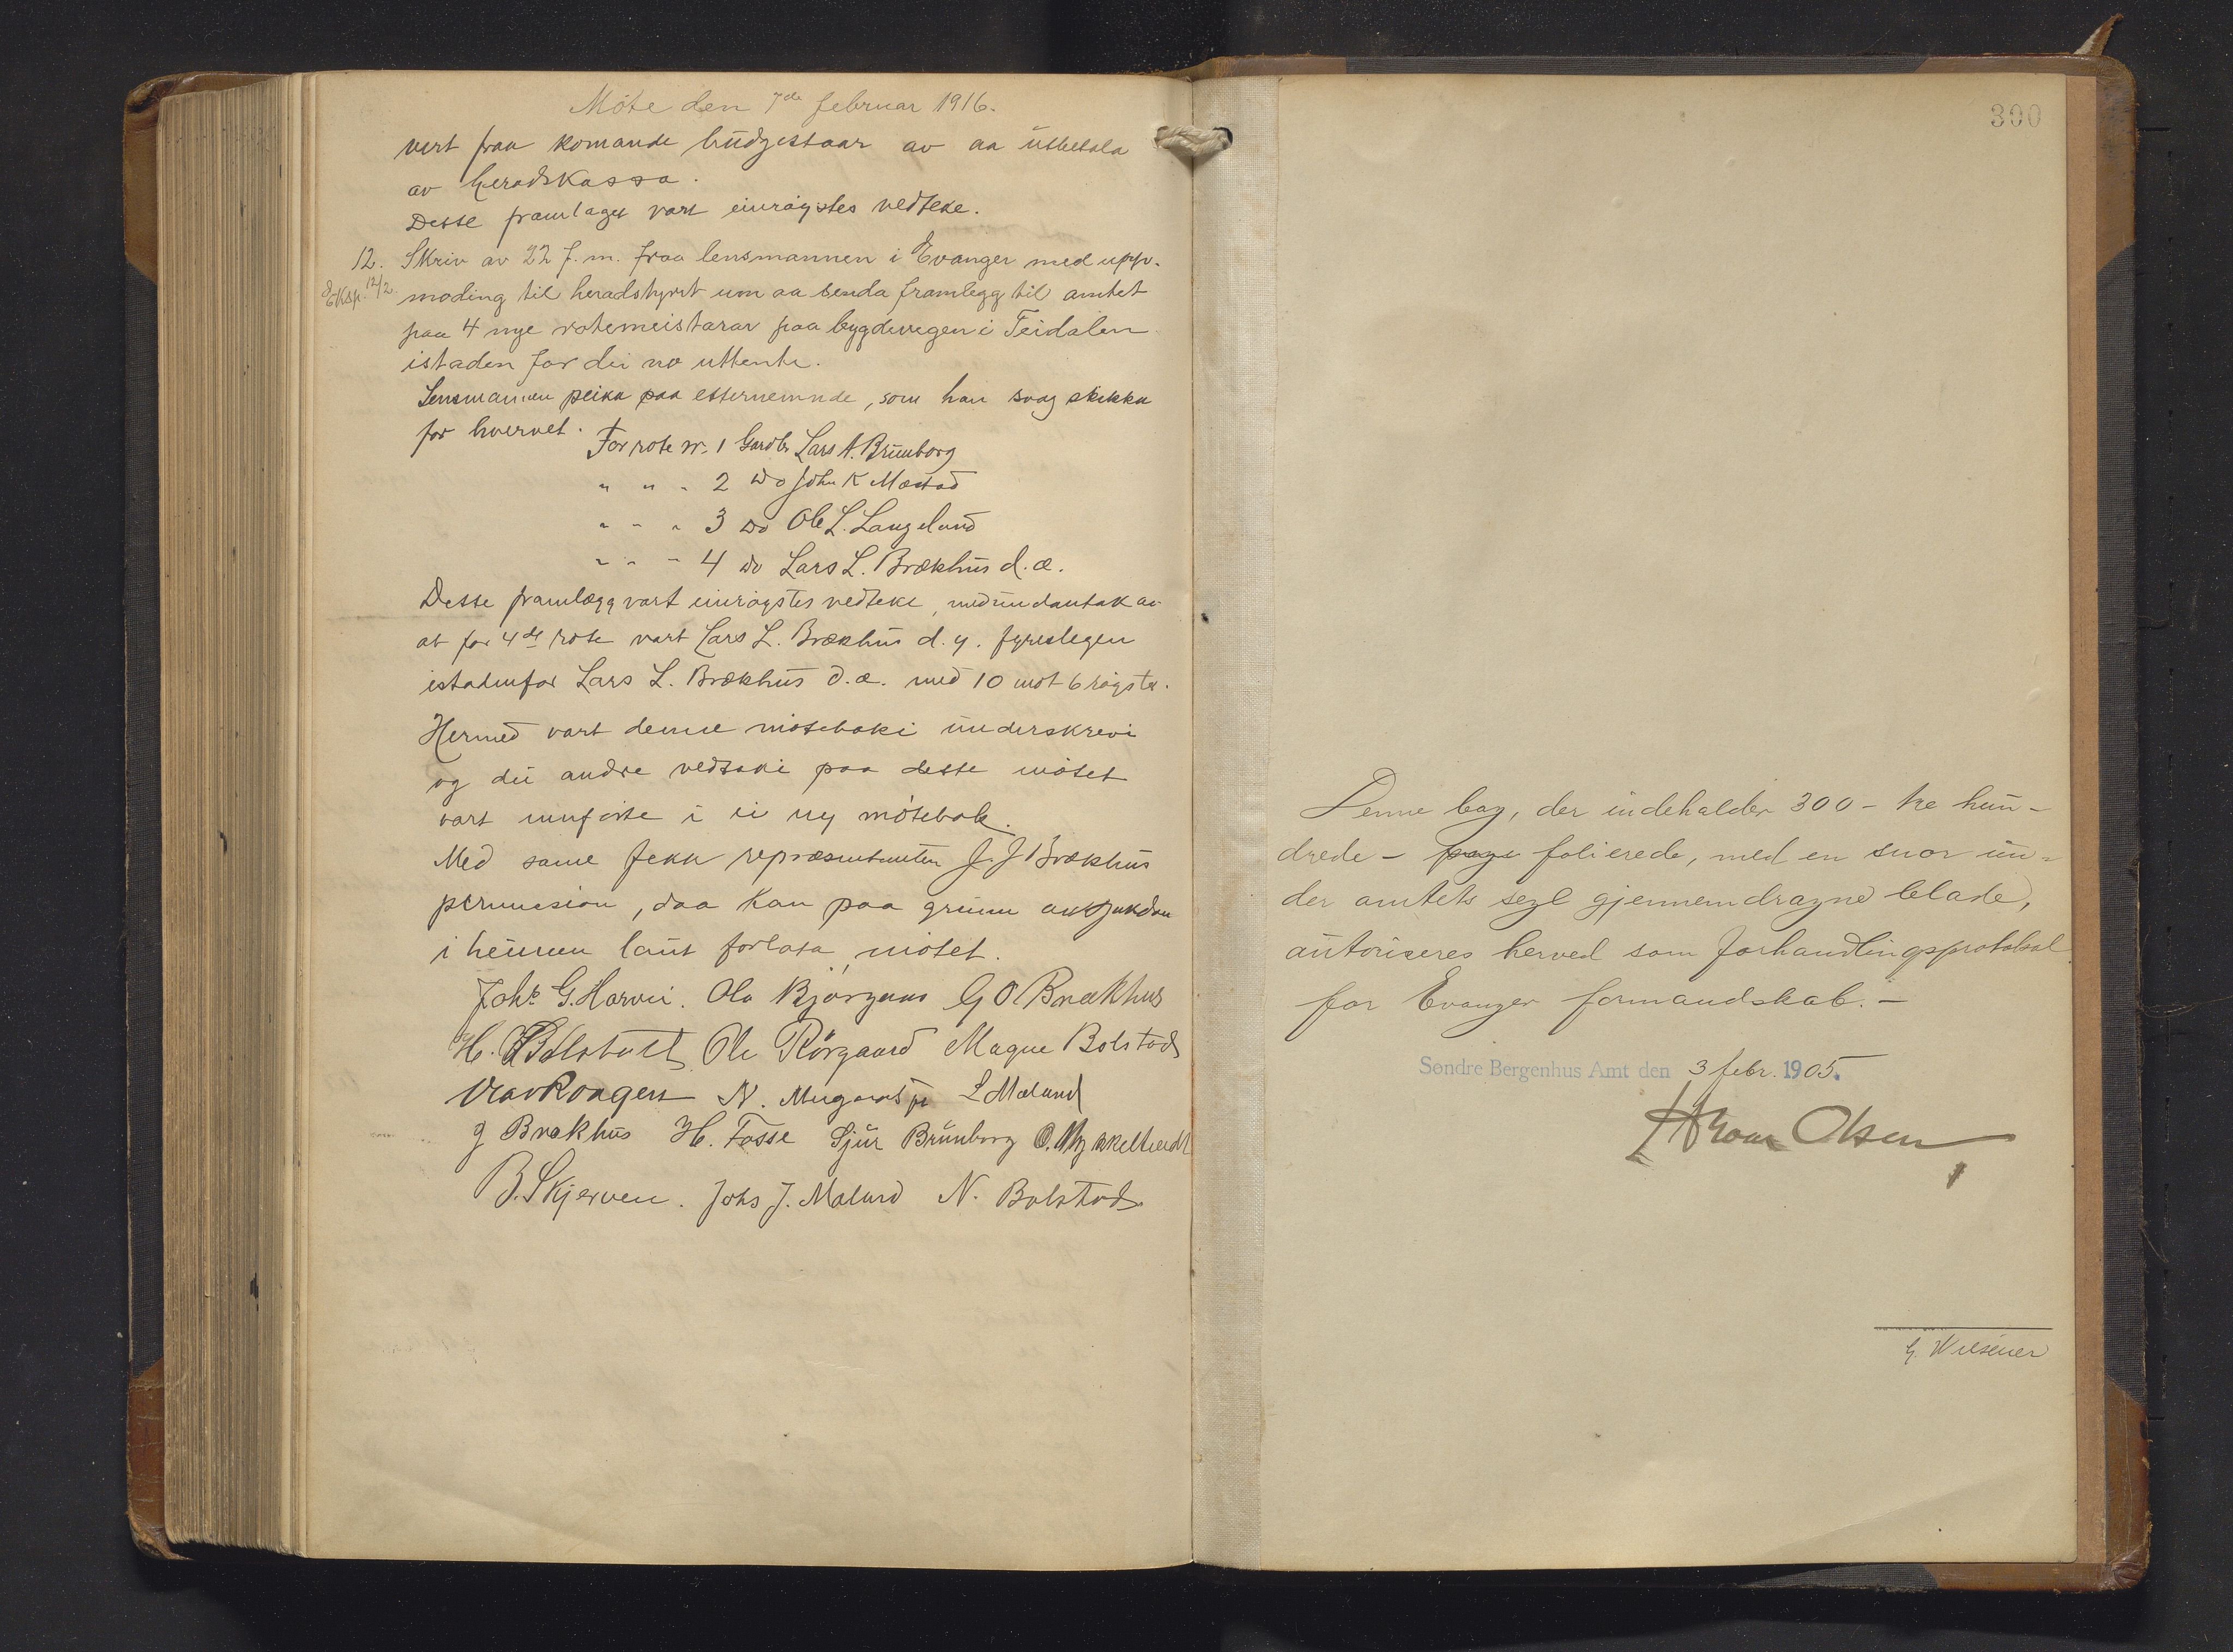 Møte den 7de februar 1916.
vert fraa komande budgestaar av aa utbetala
av heradskassa.
Desse framlaget vart einrøystes vedteke.
12. Skriv av 22 f.m. fraa lensmannen i Evanger med upp-
Eksp. 12/2 moding til heradstyret um aa senda framlegg til amtet
paa 4 nye rotemeistarar paa bygdevegen i Teidalen
istaden for dei no uttente.
Lensmannen peika paa etternemnde, som han saag skikka
for hvervet.
For rote nr. 1 Gardbr Lars A. Brunborg
" " " 2 do John K Mæstad
" " " 3 do Ole L. Langeland
" " " 4 do Lars L. Brækhus d.æ.
Desse framlægg vart einrøystes vedteke, med undantak av
at for 4de rote vart Lars L. Brækhus d.y. fyreslegen
istadenfor Lars L. Brækhus d.æ. med 10 mot 6 røyster.
Hermed vart denne møteboki underskrevi
og dei andre vedtaki paa dette møtet
vart innførte i ei ny møtebok.
Med same fekk repræsentanten J. J Brækhus
permission, daa han paa grunn av sjukdom
i heimen laut forlata møtet.
Johs G. Horvei. Ola Bjørgaas G O. Brækhus
H. Bolstad Ole Rørgaard Magne Bolstad
Olav Rongen N. L Mæland
J Brækhus H. Fosse Sjur Brunborg O.
B. Skjerven. Johs J. Mæland N. Bolstad
300
Denne bog, der indeholder 300 - tre hun-
drede - page folierede, med en snor un-
der amtets segl gjennemdragne blade,
autoriseres herved som forhandlingsprotokol
for Evanger formandskab. -
Søndre Bergenhus Amt den 3 febr. 1905.
Hroar Olsen
G. Wiesener